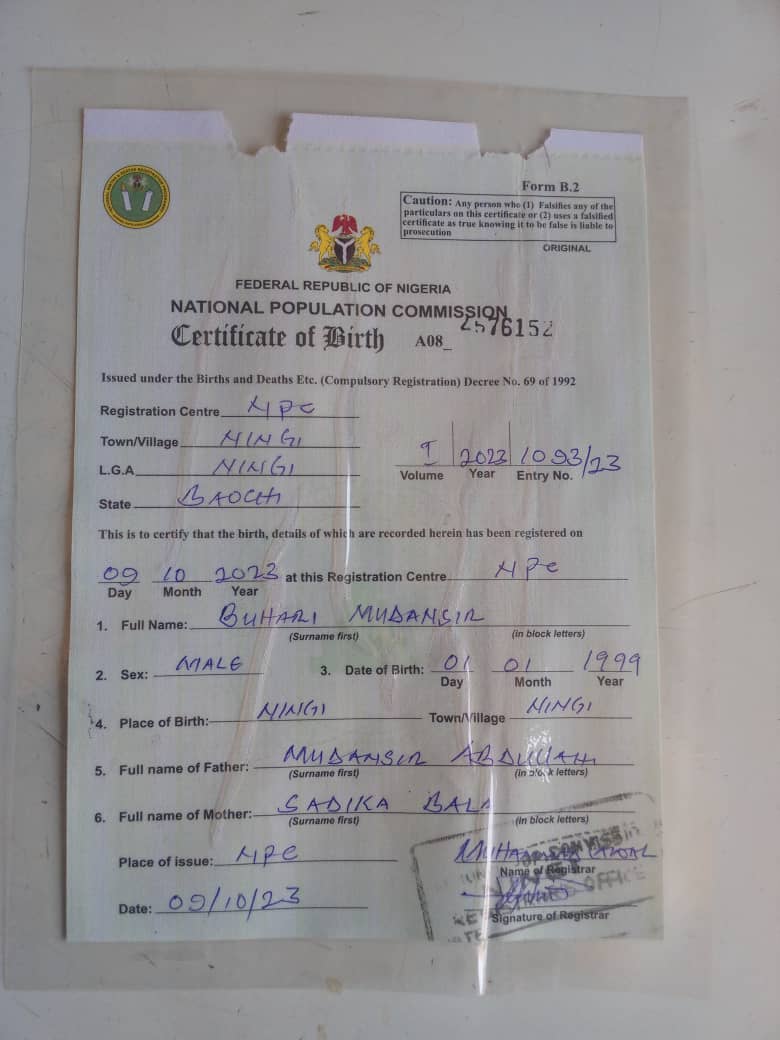 Form B.2
Caution: Any person who (1) Falsifies any of the
particulars on this certificate or (2) uses a falsified
certificate as true knowing it to be false is liable to
prosecution
ORIGINAL
FEDERAL REPUBLIC OF NIGERIA
NATIONAL POPULATION COMMISSION
Certificate of Birth A08_ 2576152
Issued under the Births and Deaths Etc. (Compulsory Registration) Decree No. 69 of 1992
Registration Centre NPC
Town/Village NINGI
L.G.A NINGI
I 2023 1093/23
Volume Year Entry No.
State BAOCHI
This is to certify that the birth, details of which are recorded herein has been registered on
09 10 2023 at this Registration Centre NPC
Day Month Year
1. Full Name: BUHARI MUDANSIR
(Surname first) (in block letters)
2. Sex: MALE 3. Date of Birth: 01 01 1999
Day Month Year
4. Place of Birth: NINGI Town/Village NINGI
5. Full name of Father: MUDANSIR ABDULLAHI
(Surname first) (in block letters)
6. Full name of Mother: SADIKA BALA
(Surname first) (in block letters)
Place of issue: NPC
Name of Registrar
Date: 09/10/23
Signature of Registrar